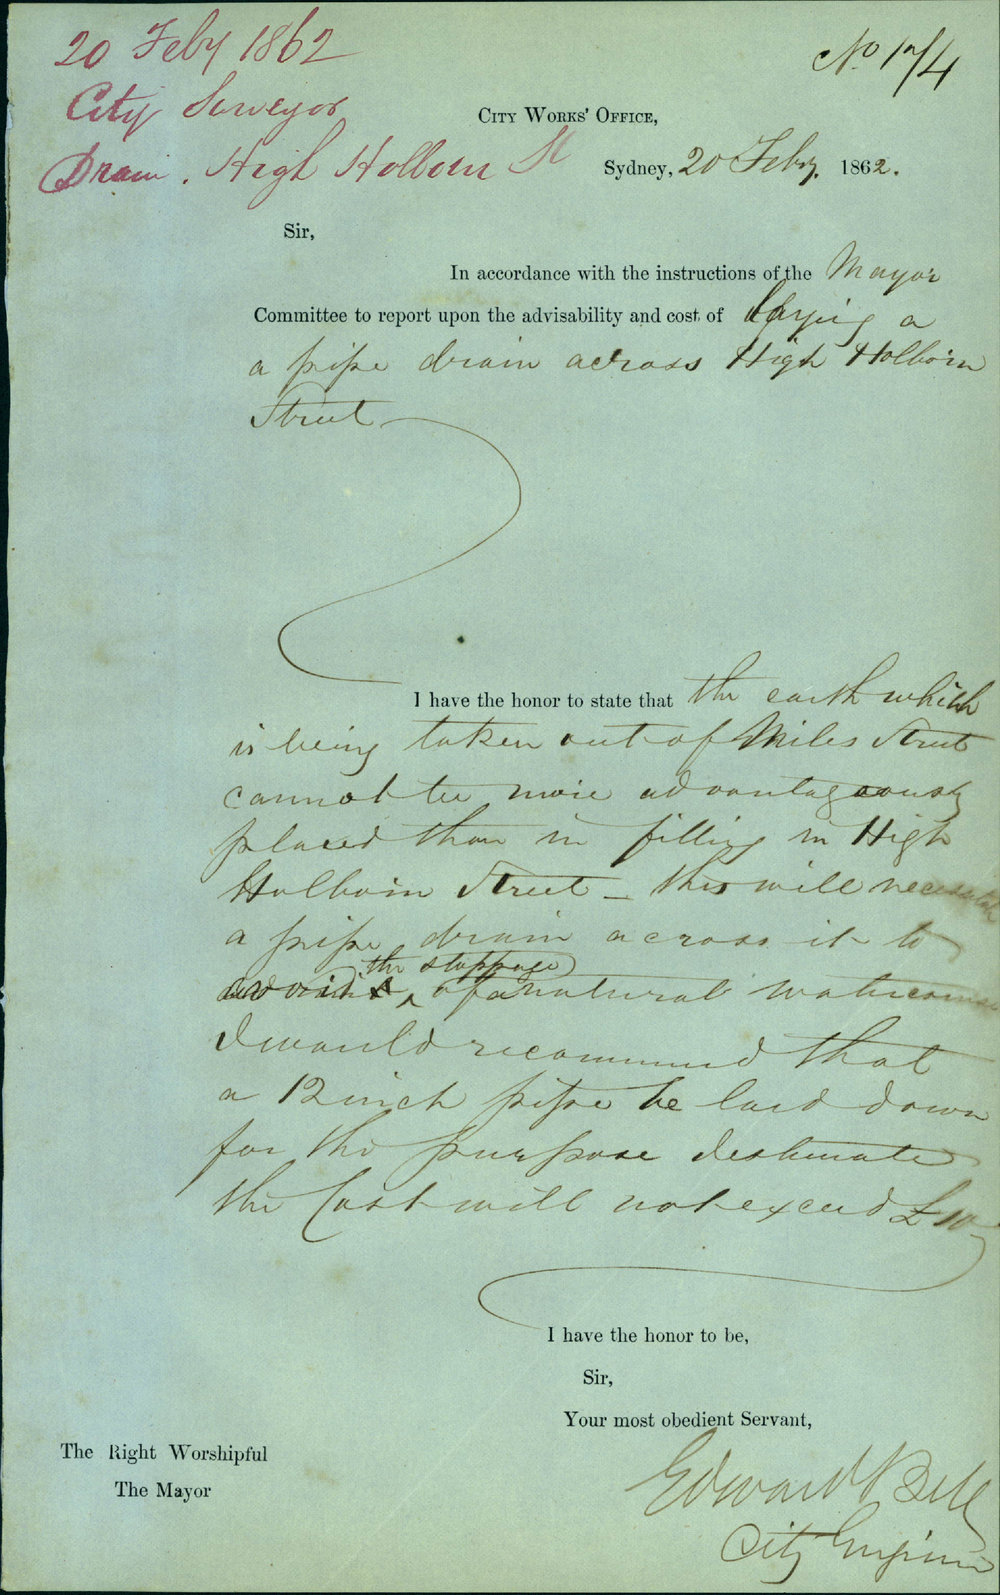 20 Feby 1862
City Surveyor
Drain. High Holborn St
No 174
CITY WORKS' OFFICE,
Sydney, 20 Feby. 1862.
Sir,
In accordance with the instructions of the Mayor
Committee to report upon the advisability and cost of laying a
a pipe drain across High Holborn
Street
I have the honor to state that the earth which
is being taken out of Miles Street
cannot be more advantageously
placed than in filling in High
Holborn Street – this will necessitate
a pipe drain across it to
avoid the stoppage of a natural watercourse
I would recommend that
a 12 inch pipe be laid down
for the purpose I estimate
the Cost will not exceed £10
I have the honor to be,
Sir,
Your most obedient Servant,
Edward Bell
City Engineer
The Right Worshipful
The Mayor